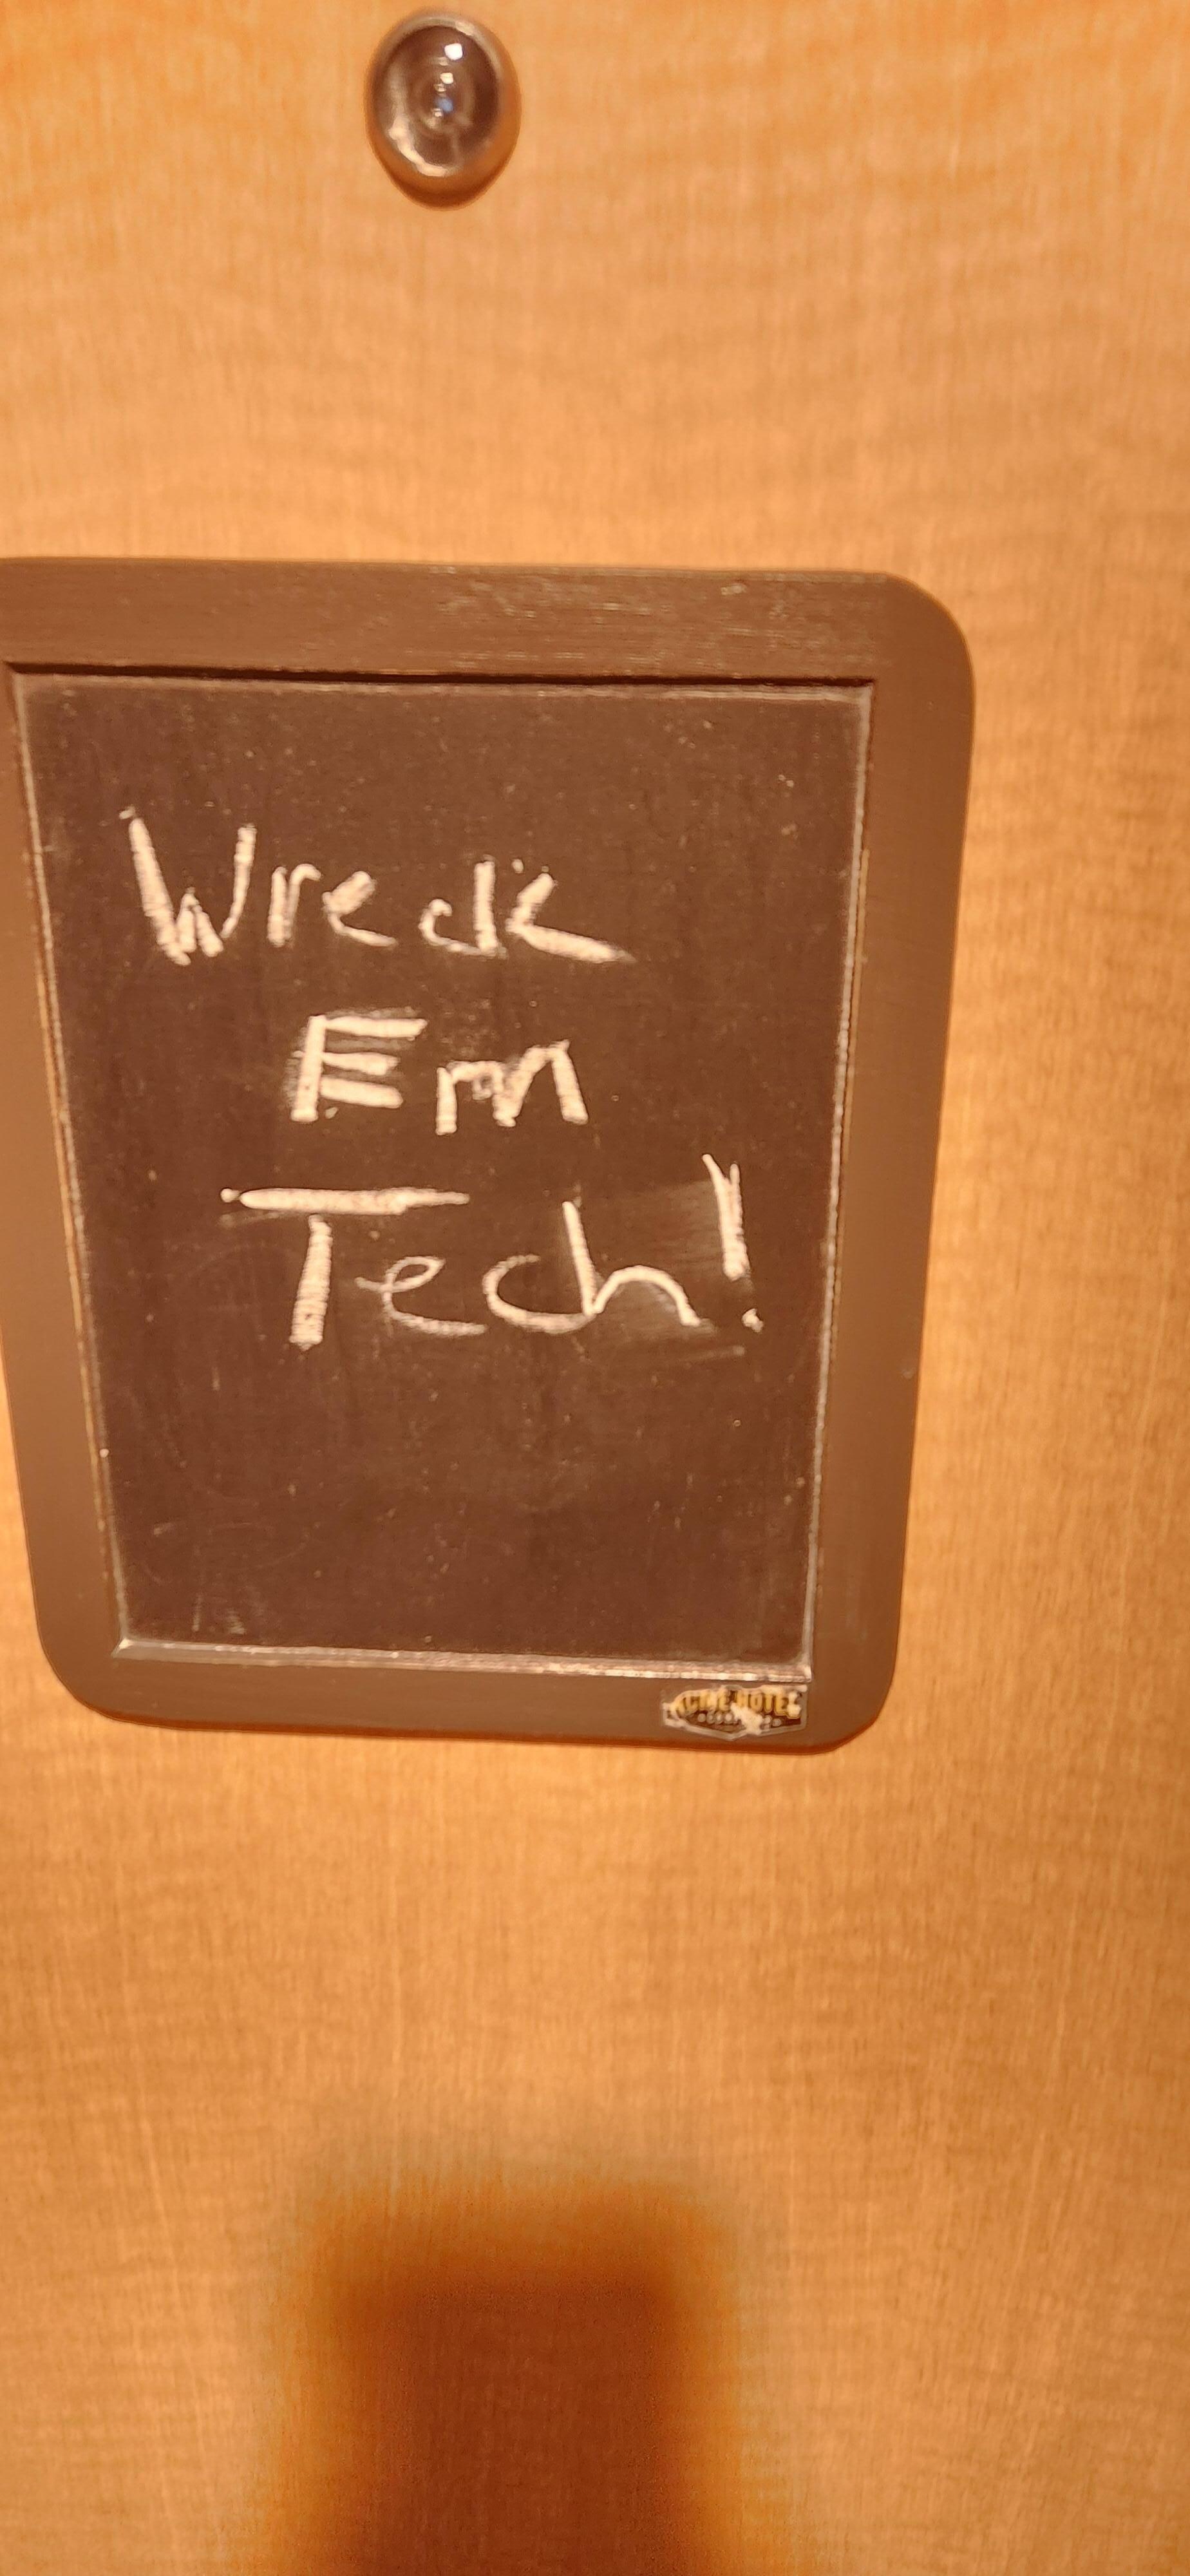 Wreck
Em
Tech!
ACME HOTEL